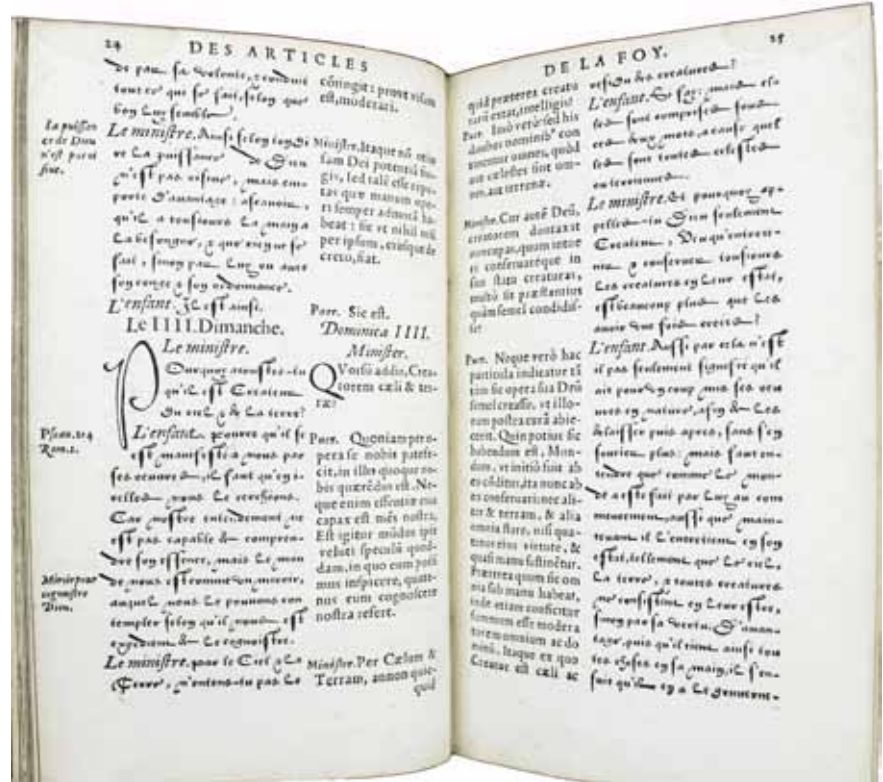 24
DES ARTICLES
La puissan
ce de Dieu
n'est point
Psau. 104
Rom. 1.
Miroir pour
cognoistre
Dieu.
de par sa volonté, conduit
tout ce qui se fait, selon que
bon luy semble.
Le ministre. Ainsi selon ton di
re la puissance de Dieu
n'est pas oisive, mais em-
porte d'avantage: asçavoir,
qu'il a tousiours la main a
la besongne, & que rien ne se
fait, sinon par luy, ou avec
son congé & son ordonnance.
L'enfant. Il est ainsi.
Le IIII. Dimanche.
Le ministre.
Pourquoy adioustes-tu
qu'il est Createur
du ciel & de la terre?
L'enfant. pource qu'il se
est manifesté a nous par
ses œuvres, il faut qu'en i-
celles nous le cerchions.
Car nostre entendement ne
est pas capable de compren-
dre son essence, mais le mon
de nous est comme un miroir,
auquel nous le pouvons con
templer selon qu'il nous est
expedient de le cognoistre.
Le ministre. par le Ciel & la
Terre, n'entens-tu pas le
cōtingit: prout visum
est, moderati.
Minister. Itaque nō otio
sam Dei potentiā fin
gis, sed talē esse repu-
tas quæ manum ope-
ri semper admotā ha-
beat: sic vt nihil nisi
per ipsum, eiusque de
creto, fiat.
Puer. Sic est.
Dominica IIII.
Minister.
QVorsū addis, Crea-
torem cæli & ter-
ræ?
Puer. Quoniam per o-
pera se nobis patefe-
cit, in illis quoque no-
bis quærēdus est. Ne-
que enim essentiæ eius
capax est mēs nostra,
Est igitur mūdus ipse
veluti speculū quod-
dam, in quo eum possi
mus inspicere, quate-
nus eum cognoscere
nostra refert.
Minister. Per Cælum &
Terram, annon quic-
quid
DE LA FOY.
25
quid præterea creatu
rarū extat, intelligis?
Puer. Imò verò: sed his
duobus nominib' con
tinentur omnes, quòd
aut cælestes sint om-
nes, aut terrenæ.
Minister. Cur autē Deū,
creatorem duntaxat
nuncupas, quum tueri
conseruaréque in
suo statu creaturas,
multò sit præstantius
quàm semel condidis-
se?
Puer. Neque verò hac
particula indicatur tā
tùm sic opera sua Deū
semel creasse, vt illo-
rum postea curā abie-
cerit. Quin potius sic
habendum est, Mun-
dum, vt initiò fuit ab
eo cōditus, ita nunc ab
eo conseruari: nec ali-
ter & terram, & alia
omnia stare, nisi qua-
tenus eius virtute, &
quasi manu sustinētur.
Præterea quum sic om
nia sub manu habeat,
inde etiam conficitur
summum esse modera
torem omnium ac do
minū. Itaque ex quo
Creator est cæli ac
residu des creatures?
L'enfant. Si fay: mais el-
les sont comprises sous
ces deux mots, a cause quel
les sont toutes celestes
ou terriennes.
Le ministre. Et pourquoy ap-
pelles-tu Dieu seulement
Createur, Veu qu'entrete-
nir & conserver tousiours
les creatures en leur estat,
est beaucoup plus que les
avoir une fois creées?
L'enfant. Aussi par cela n'est
il pas seulement signifié qu'il
ait pour un coup mis ses œu
vres en nature, afin de les
delaisser puis apres, sans s'en
soucier plus: mais faut en-
tendre que comme le mon-
de a esté fait par luy au com
mencement, aussi que main-
tenant il l'entretient en son
estat, tellement que le ciel,
la terre, & toutes creatures
ne consistent en leur estre,
sinon par sa vertu. D'avan-
tage, puis qu'il tient ainsi tou
tes choses en sa main, il s'en-
suit qu'il en a le gouverne-